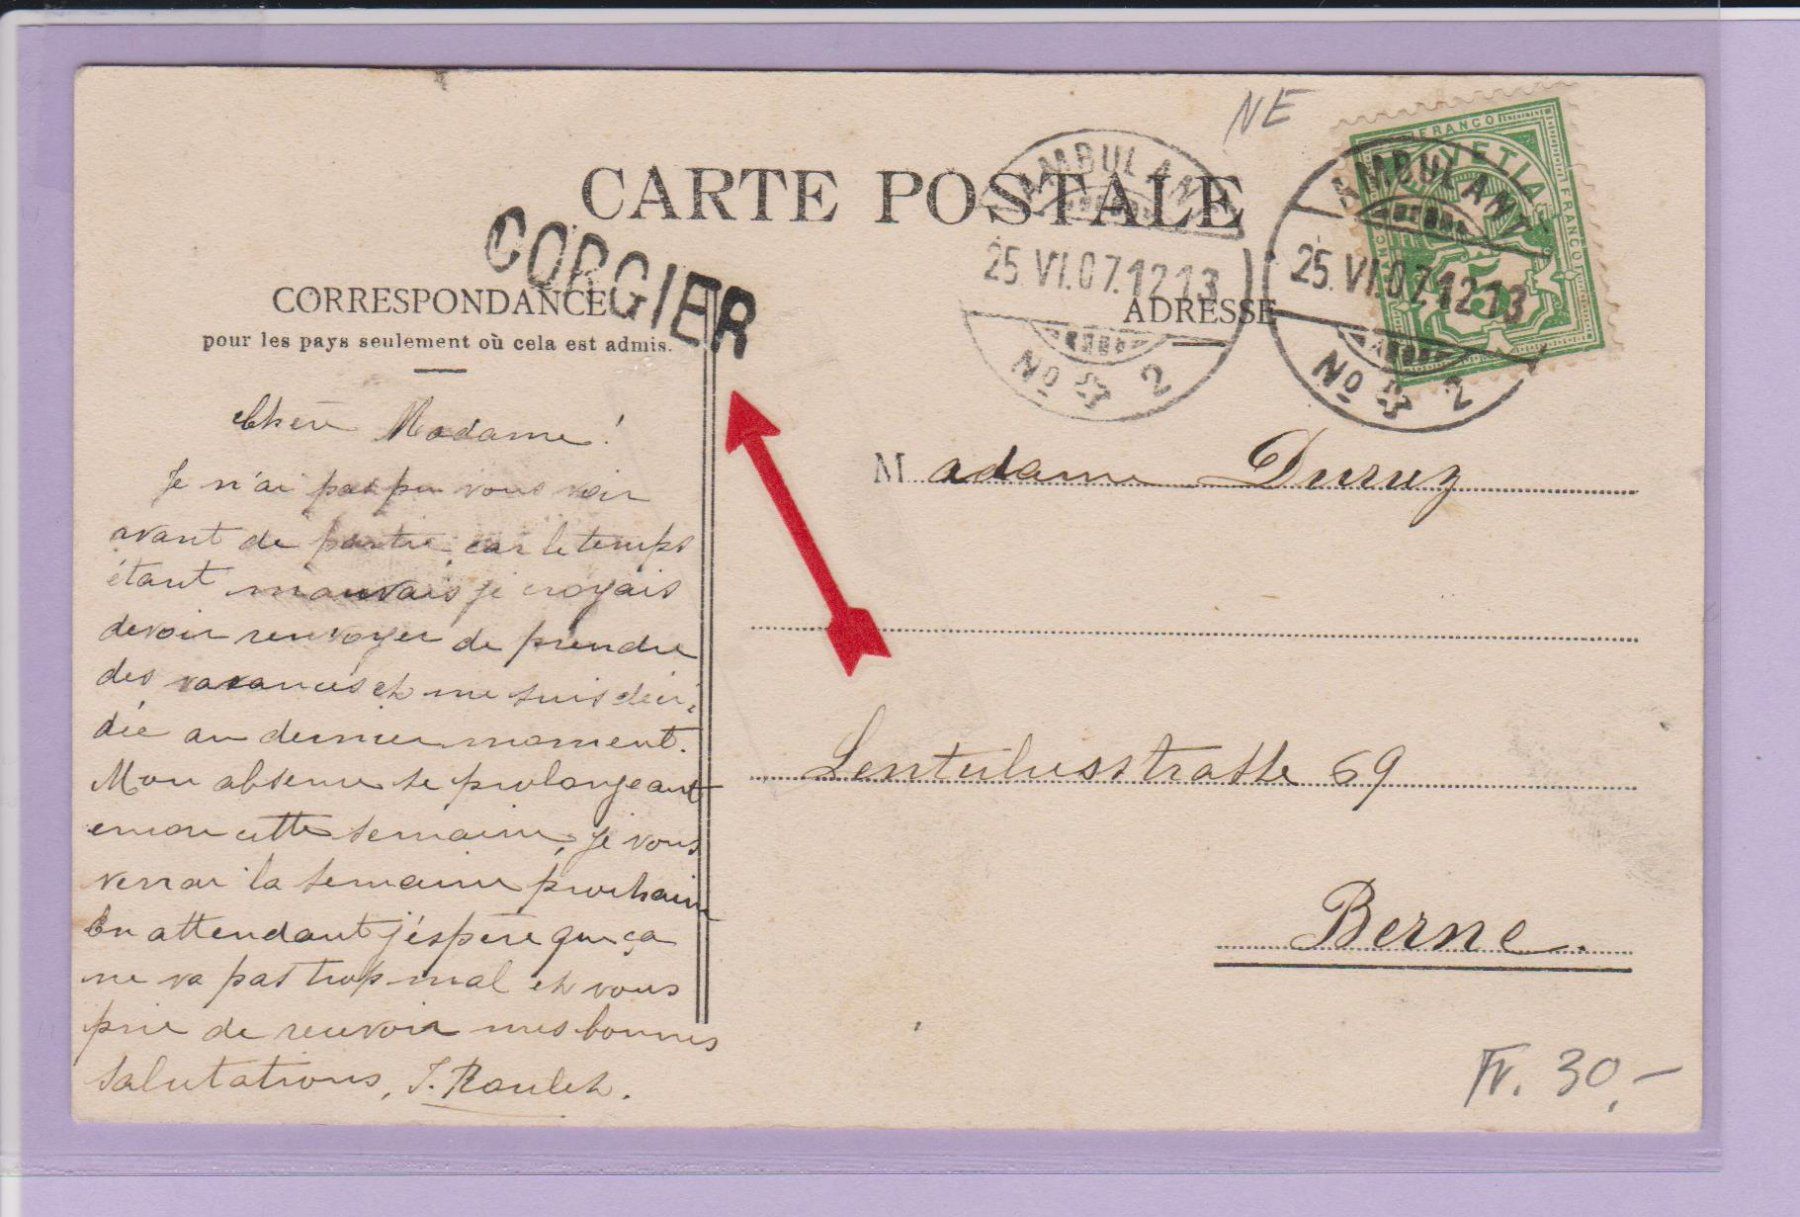 NE
CARTE POSTALE
CORGIER
AMBULANT
25.VI.07.12 13
No 2
FRANCO HELVETIA FRANCO
5
AMBULANT
25.VI.07.12 13
No 2
CORRESPONDANCE
pour les pays seulement où cela est admis.
ADRESSE
Chère Madame!
Je n'ai pas pu vous voir
avant de partir, car le temps
étant mauvais je croyais
devoir renvoyer de prendre
des vacances et me suis déci-
dée au dernier moment.
Mon absence se prolongeant
encore cette semaine, je vous
verrai la semaine prochaine
En attendant j'éspère que ça
ne va pas trop mal et vous
prie de recevoir mes bonnes
salutations, J. Roulet.
Madame Duruz
Lentulusstrasse 69
Berne.
Fr. 30,-